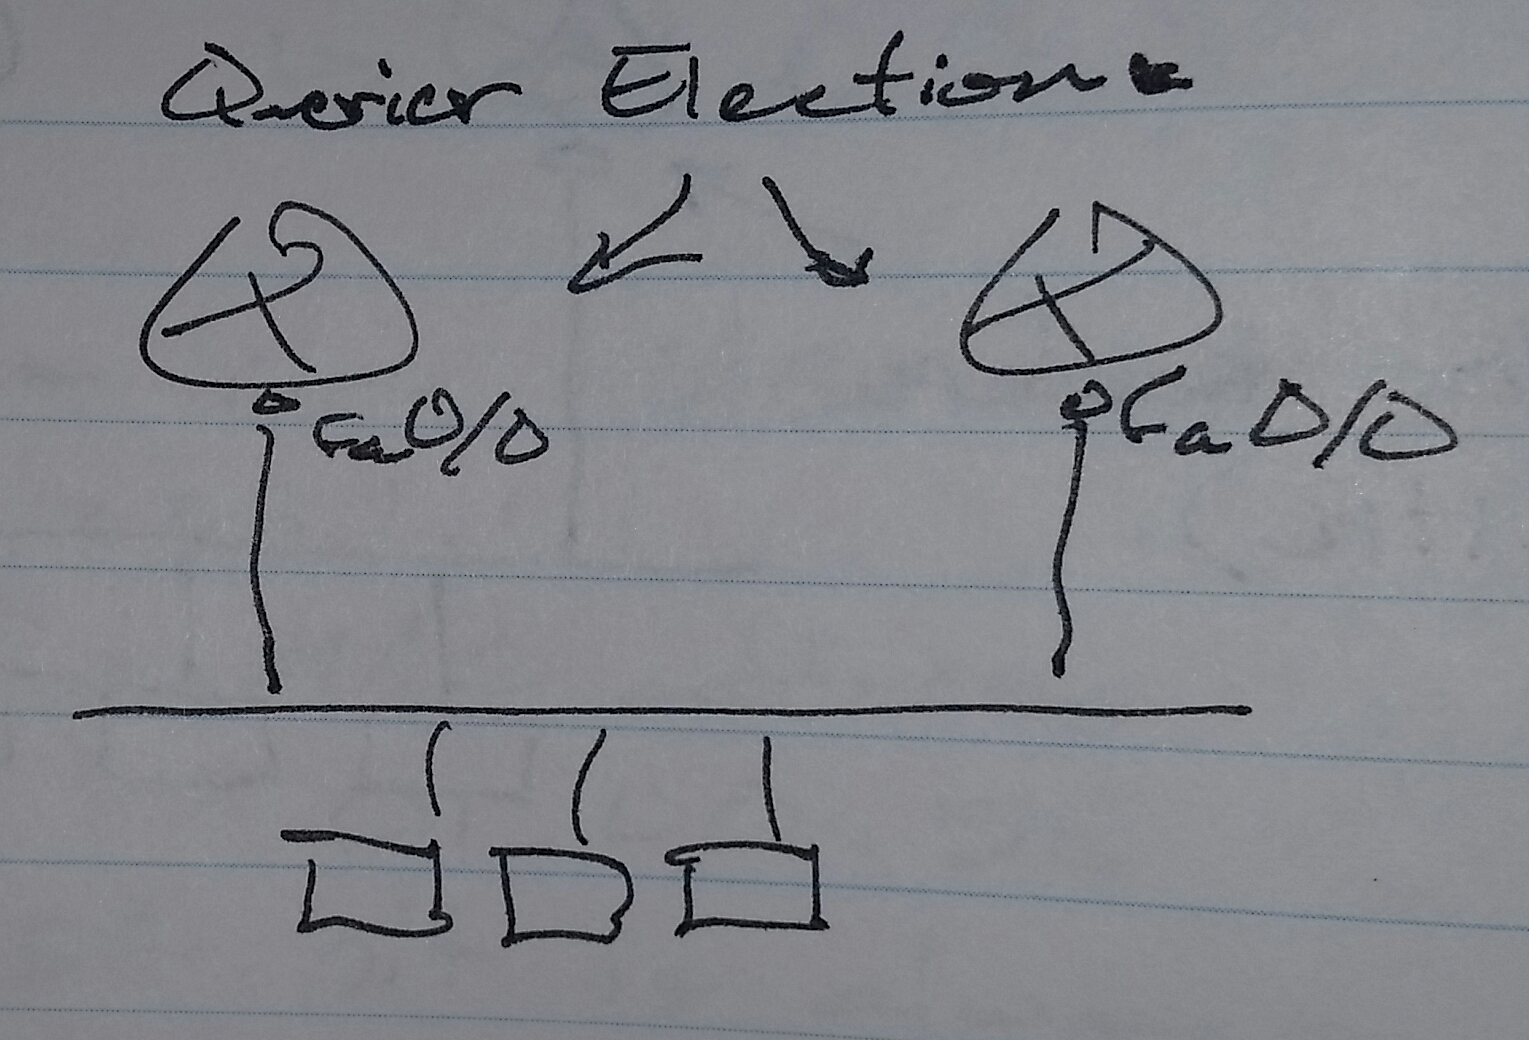 Querier Election
Fa0/0
Fa0/0